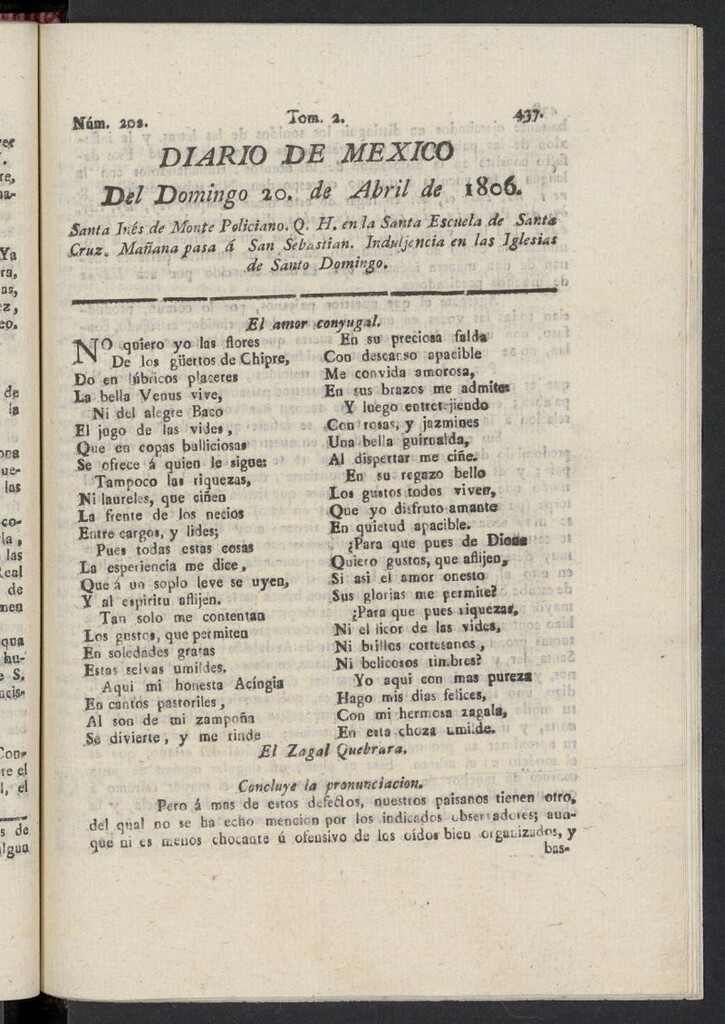 Núm. 202. Tom. 2. 437.
DIARIO DE MEXICO
Del Domingo 20. de Abril de 1806.
Santa Inés de Monte Policiano. Q. H. en la Santa Escuela de Santa
Cruz. Mañana pasa á San Sebastian. Induljencia en las Iglesias
de Santo Domingo.
El amor conyugal.
NO quiero yo las flores
De los güertos de Chipre,
Do en lúbricos placeres
La bella Venus vive,
Ni del alegre Baco
El jugo de las vides,
Que en copas bulliciosas
Se ofrece á quien le sigue:
Tampoco las riquezas,
Ni laureles, que ciñen
La frente de los necios
Entre cargos, y lides;
Pues todas estas cosas
La esperiencia me dice,
Que á un soplo leve se uyen,
Y al espiritu aflijen.
Tan solo me contentan
Los gustos, que permiten
En soledades gratas
Estas selvas umildes.
Aqui mi honesta Acíngia
En cantos pastoriles,
Al son de mi zampoña
Se divierte, y me rinde
En su preciosa falda
Con descanso apacible
Me convida amorosa,
En sus brazos me admite:
Y luego entretejiendo
Con rosas, y jazmines
Una bella guirnalda,
Al dispertar me ciñe.
En su regazo bello
Los gustos todos viven,
Que yo disfruto amante
En quietud apacible.
¿Para que pues de Diona
Quiero gustos, que aflijen,
Si asi el amor onesto
Sus glorias me permite?
¿Para que pues riquezas,
Ni el licor de las vides,
Ni brillos cortesanos,
Ni belicosos timbres?
Yo aqui con mas pureza
Hago mis dias felices,
Con mi hermosa zagala,
En esta choza umilde.
El Zagal Quebrara.
Concluye la pronunciacion.
Pero á mas de estos defectos, nuestros paisanos tienen otro,
del qual no se ha echo mencion por los indicados observadores; aun-
que ni es menos chocante ú ofensivo de los oídos bien organizados, y
bas-